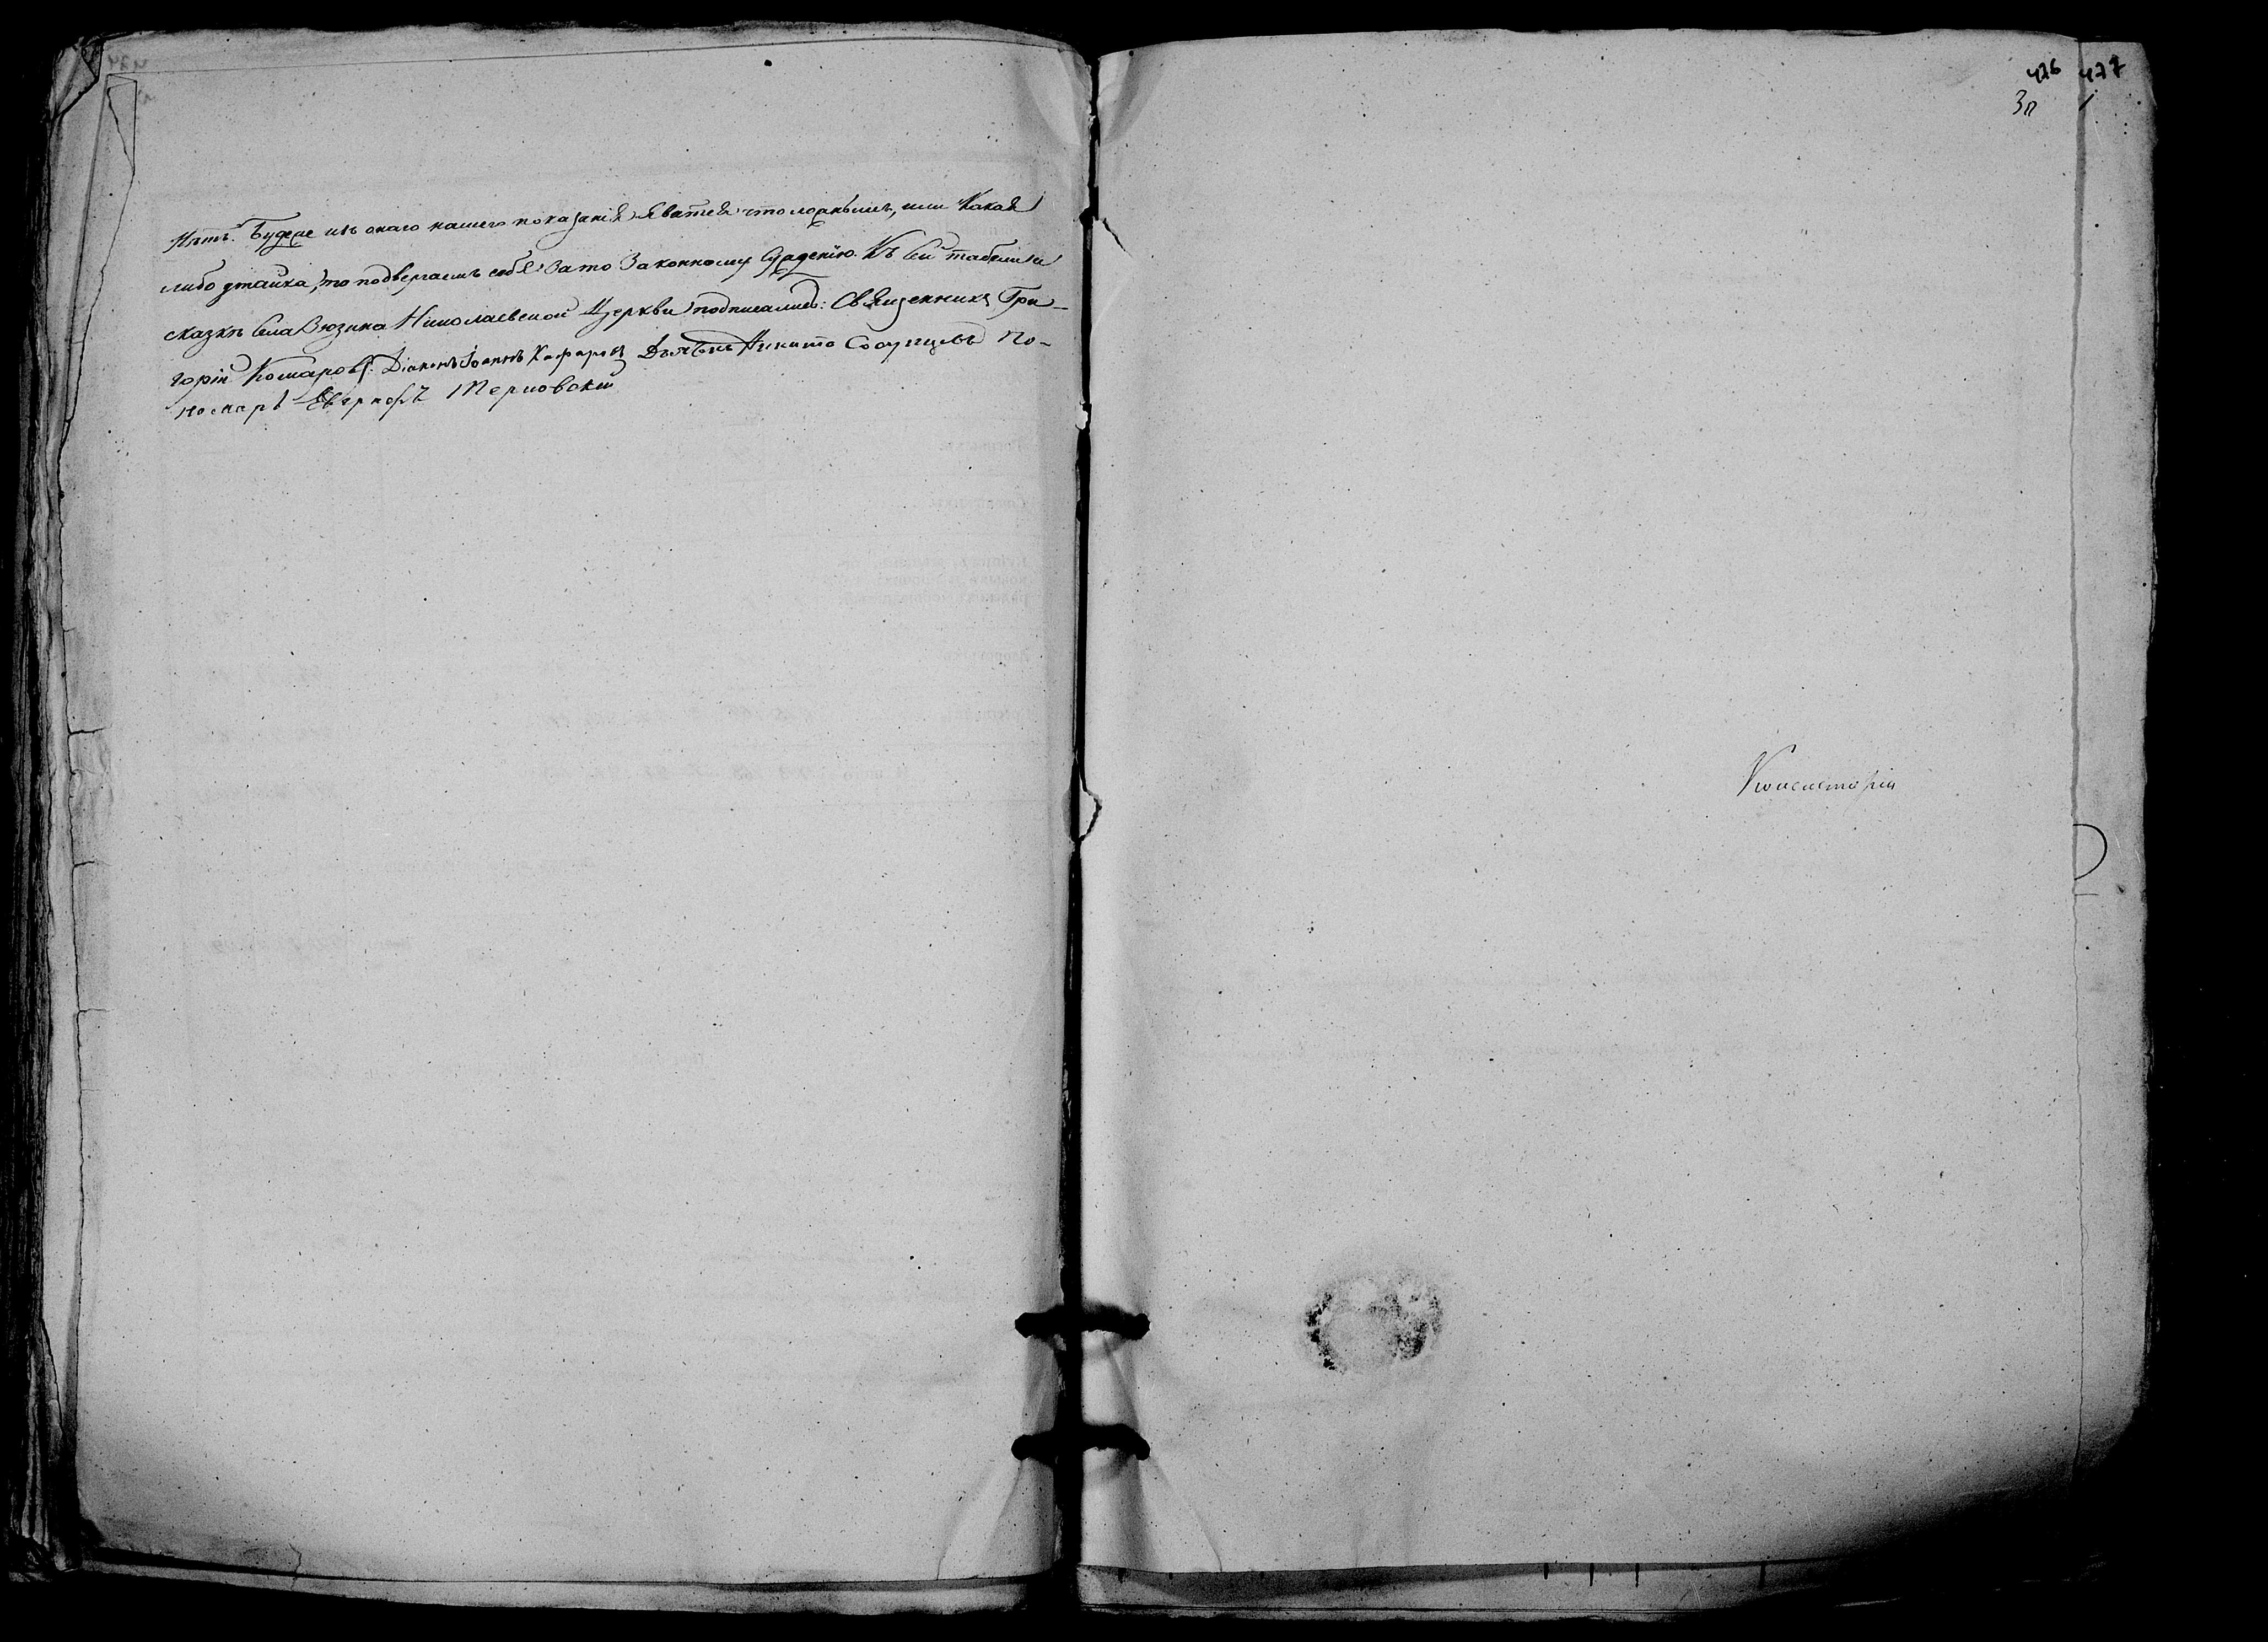 Нѣтъ. Будеже изъ онаго нашего показанія явится что ложнымъ, или какая
либо утайка, то подвергаемъ себя за то законному сужденію. Къ сей табели и
сказкѣ села Вюзина Николаевской Церкви подписались: Священникъ Гри-
горій Комаровъ. Діаконъ Іоаннъ Дьячекъ Никита По-
номарь Терновскій
426 427
Зп
Консисторія